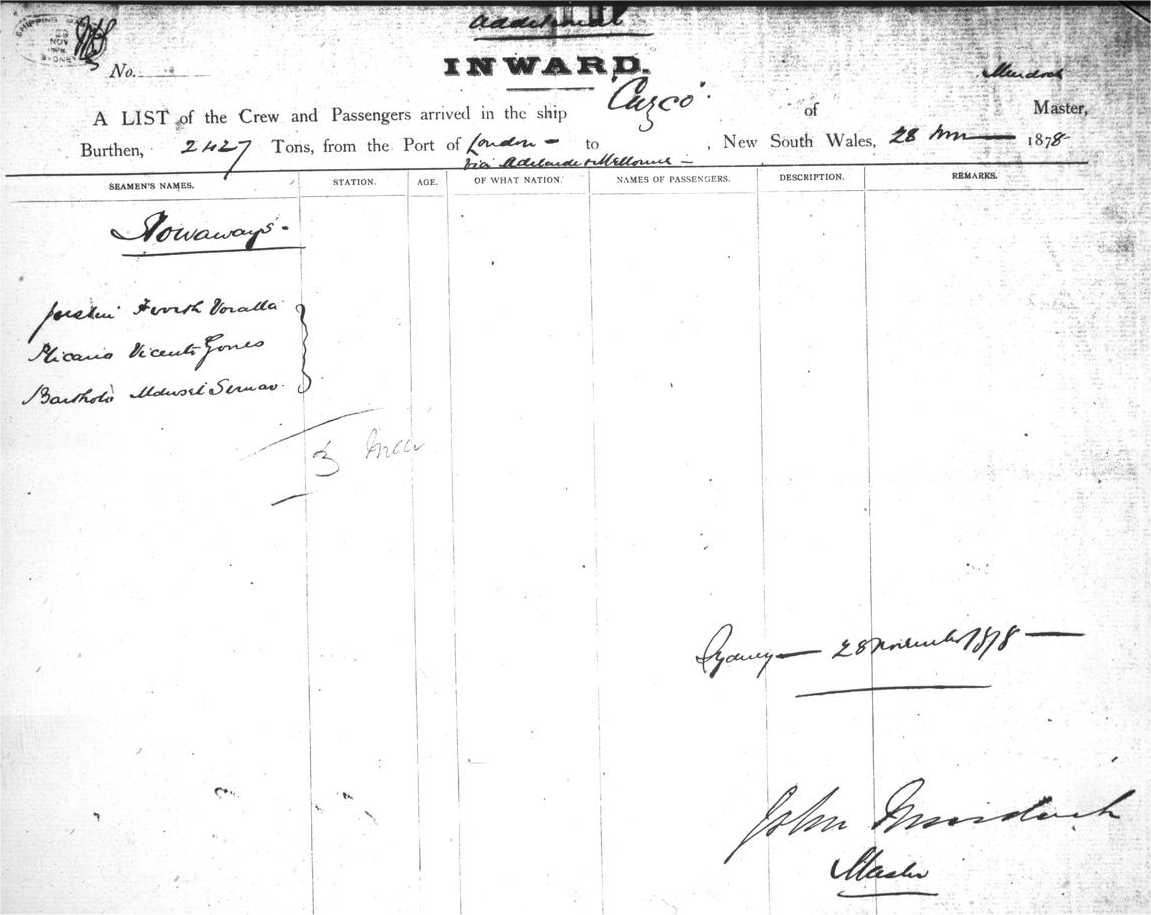 SHIPPING
NOV
SYDNEY
additional
No.
INWARD.
Murdoch
A LIST of the Crew and Passengers arrived in the ship "Cuzco" of Master,
Burthen, 2427 Tons, from the Port of London to , New South Wales, 28 Nov 1878
via Adelaide & Melbourne
SEAMEN'S NAMES. STATION. AGE. OF WHAT NATION. NAMES OF PASSENGERS. DESCRIPTION. REMARKS.
Stowaways
Voralla
Vicente Gomes
Bartholo
3 men
Sydney 28 November 1878
John Murdoch
Master